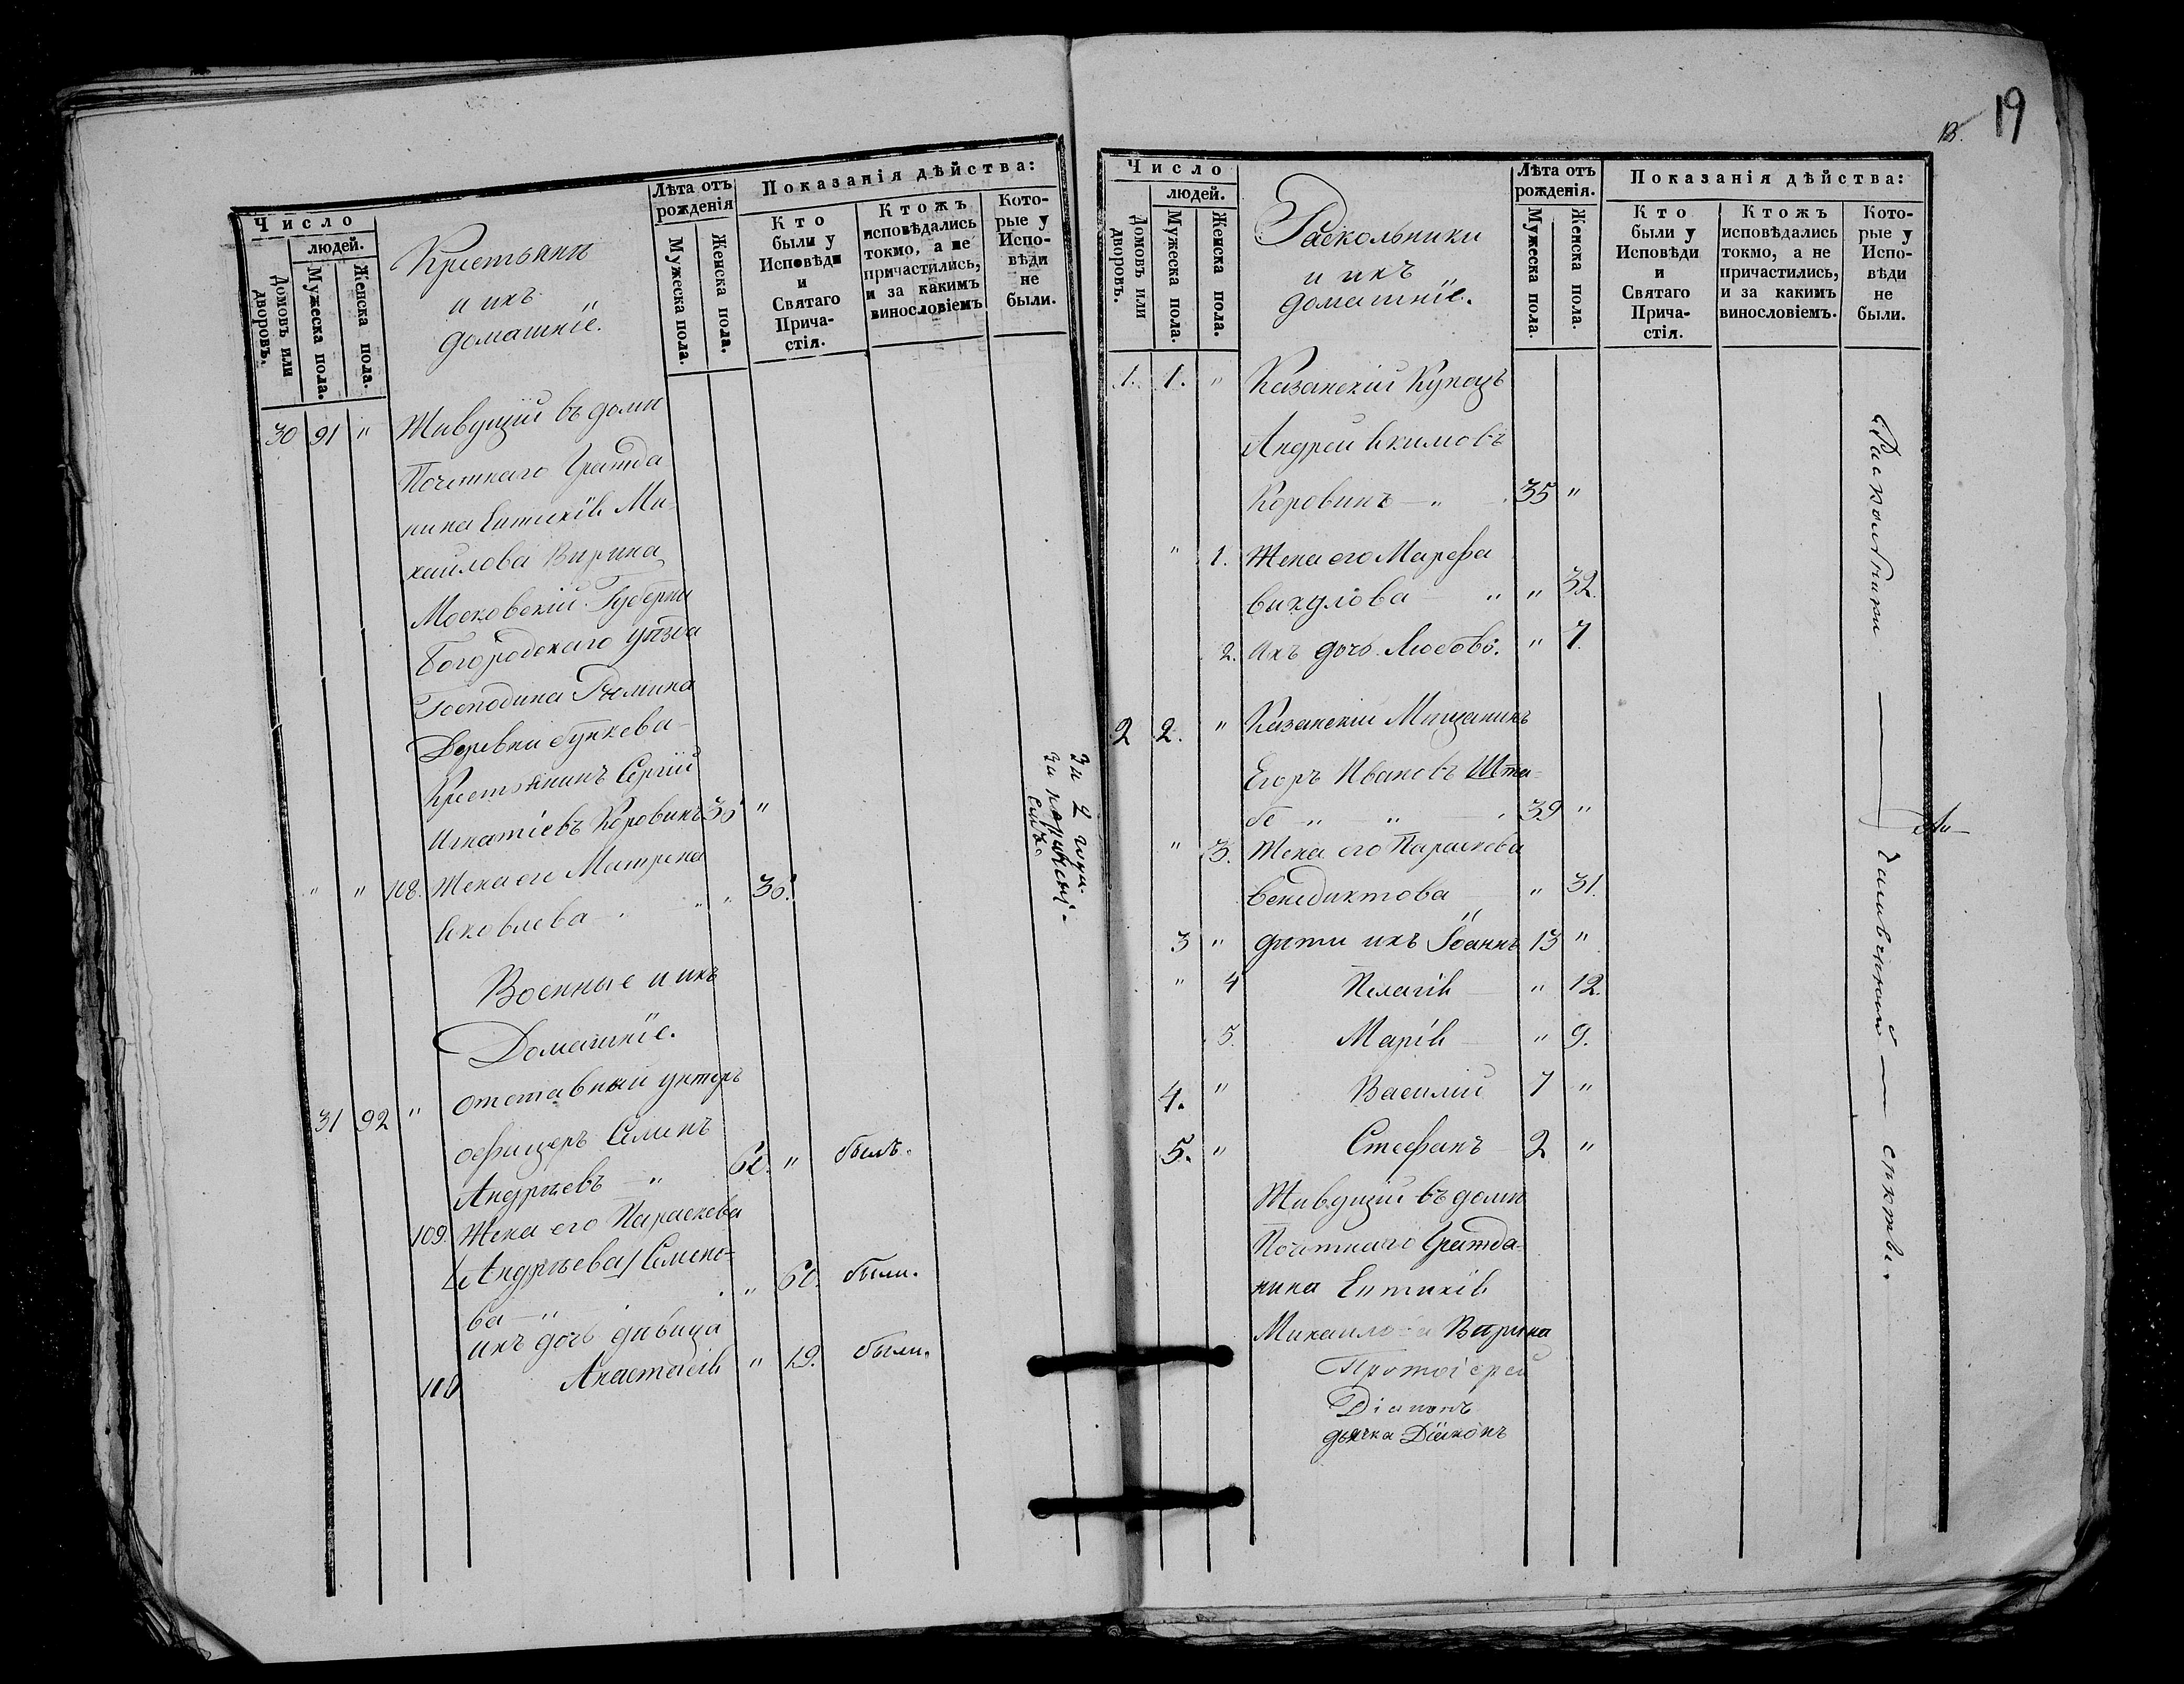 Число
людей.
Домовъ или дворовъ.
Мужеска пола.
Женска пола.
Крестьяне
и ихъ
домашніе.
Лѣта отъ рожденія
Мужеска пола.
Женска пола.
Показанія дѣйства:
Кто были у Исповѣди и Святаго Прича-стія.
Ктожъ исповѣдались токмо, а не причастились, и за какимъ винословіемъ
Кото-рые у Испо-вѣди не были.
30 91 " Живущій въ домѣ
Почетнаго Гражда
нина Евтихія Ми-
хайлова
Московской Губерніи
Богородскаго уѣзда
Господина Рюмина
Деревни Бункова
Крестьянинъ Сергій
Игнатіевъ Коровинъ 35 "
" " 108. Жена его Матрена
Яковлева " " 30.
за 2 года
Военные и ихъ
Домашніе.
31 92 " Отставный унтеръ
офицеръ Семенъ
Андреевъ " 60. " былъ.
109. Жена его Параскева
Андреева / Семено-
ва " " 60. были.
ихъ дочь дѣвица
110 Анастасія " 19. были.
19
Число
людей.
Домовъ или дворовъ.
Мужеска пола.
Женска пола.
Раскольники
и ихъ
домашніе.
Лѣта отъ рожденія.
Мужеска пола.
Женска пола.
Показанія дѣйства:
Кто были у Исповѣди и Святаго Прича-стія.
Ктожъ исповѣдались токмо, а не причастились, и за какимъ винословіемъ.
Кото-рые у Испо-вѣди не были.
1. 1. " Казанскій Купецъ
Андрей Якимовъ
Коровинъ " 35 "
" 1. Жена его Марефа
Викулова " " 32.
2. Ихъ дочь Любовь. " 7.
2 2. " Казанскій Мѣщанинъ
Егоръ Ивановъ
" " 39 "
" 3. Жена его Параскева
Венедиктова " 31.
3 " дѣти ихъ Іоаннъ 13 "
" 4 Пелагія " 12.
5. Марія " 9.
4. " Василій 7 "
5. " Стефанъ 2 "
Живущій въ домѣ
Почетнаго Гражда-
нина Евтихія
Михайлова
Протоіерей
Діаконъ
дьячка Діаконъ
Раскольники секты.